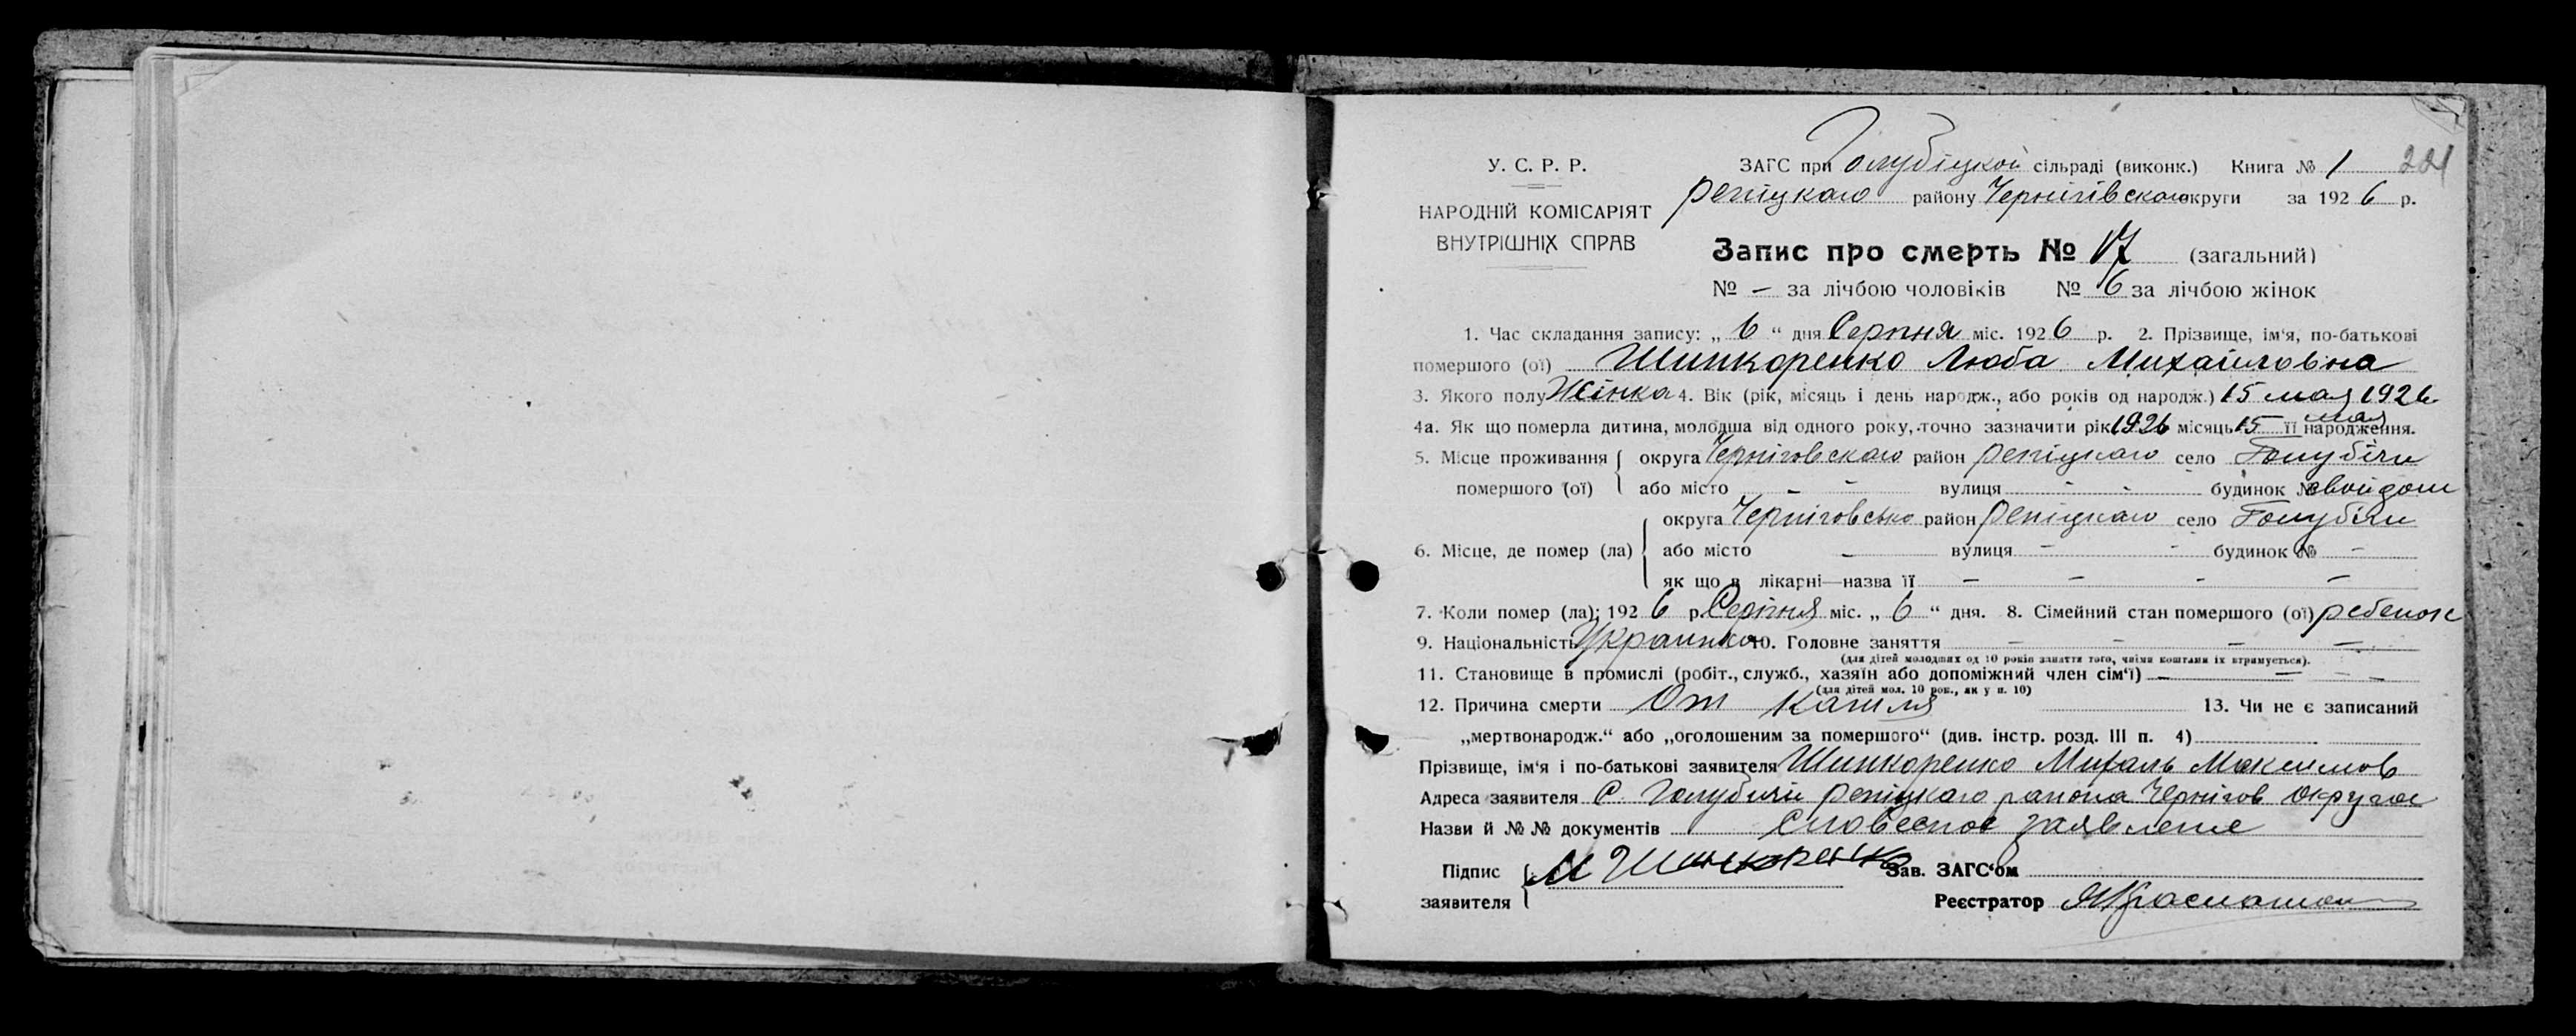 У. С. Р. Р.
НАРОДНІЙ КОМІСАРІЯТ
ВНУТРІШНІХ СПРАВ
ЗАГС при Голубіцкой сільраді (виконк.) Книга № 1 221
репіцкаго району Чернігівскаго округи за 1926 р.
Запис про смерть № 17 (загальний)
№ – за лічбою чоловіків № 6 за лічбою жінок
1. Час складання запису: „ 6 “ дня Серпня міс. 1926 р. 2. Прізвище, ім'я, по-батькові
помершого (ої) Шинкоренко Люба Михайловна
3. Якого полу Жінка 4. Вік (рік, місяць і день народж., або років од народж.) 15 мая 1926
4а. Як що померла дитина, молодша від одного року, точно зазначити рік 1926 місяць 15 мая її народження.
5. Місце проживання помершого (ої) округа Черніговскаго район репіцкаго село Голубічи
або місто – – вулиця – – будинок № свой дом
6. Місце, де помер (ла) округа Черніговсько район репіцкаго село Голубічи
або місто – вулиця – – будинок № –
як що в лікарні—назва її – – – –
7. Коли помер (ла): 1926 р. Серпня міс. „ 6 “ дня. 8. Сімейний стан помершого (ої) ребенок
9. Національність Украинка 10. Головне заняття – – – –
(для дітей молодших од 10 років заняття того, чиїми коштами їх втримується).
11. Становище в промислі (робіт., служб., хазяїн або допоміжний член сім'ї) – – – –
(для дітей мол. 10 рок., як у п. 10)
12. Причина смерти От кашля 13. Чи не є записаний
„мертвонародж.“ або „оголошеним за помершого“ (див. інстр. розд. III п. 4)
Прізвище, ім'я і по-батькові заявителя Шинкоренко Михаль Максимов
Адреса заявителя С. Голубичи репіцкаго раиона Чернігов округи
Назви й № № документів Словесное заявление
Підпис заявителя М Шинкоренко Зав. ЗАГС'ом
Реєстратор